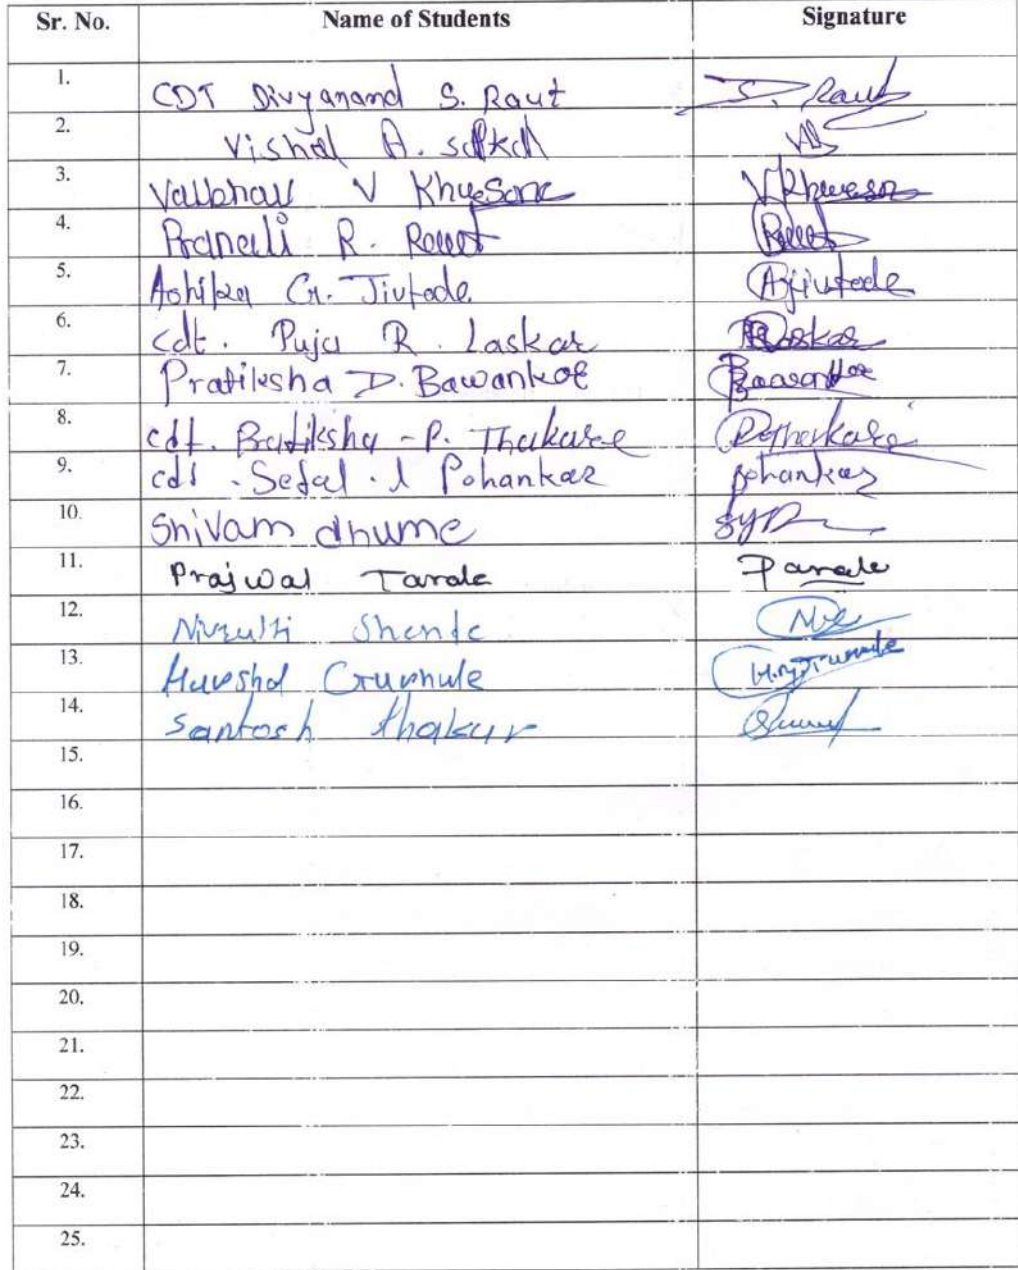 Sr. No. Name of Students Signature
1. CDT Divyanand S. Raut S. Raut
2. Vishal A.
3. Vaibhav V Khuesane VKhuesan
4. Pranali R. Raut Raut
5. Ashika G. Jivtode AJivtode
6. cdt. Puja R. Laskar Laskar
7. Pratiksha D. Bawankar
8. cdt. Pratiksha - P. Thakare
9. cdt. Sejal . Pohankar Pohankar
10. Shivam dhume
11. Prajwal Tarale
12. Shende
13. Harshal Gurnule
14. Santosh thakur
15.
16.
17.
18.
19.
20.
21.
22.
23.
24.
25.